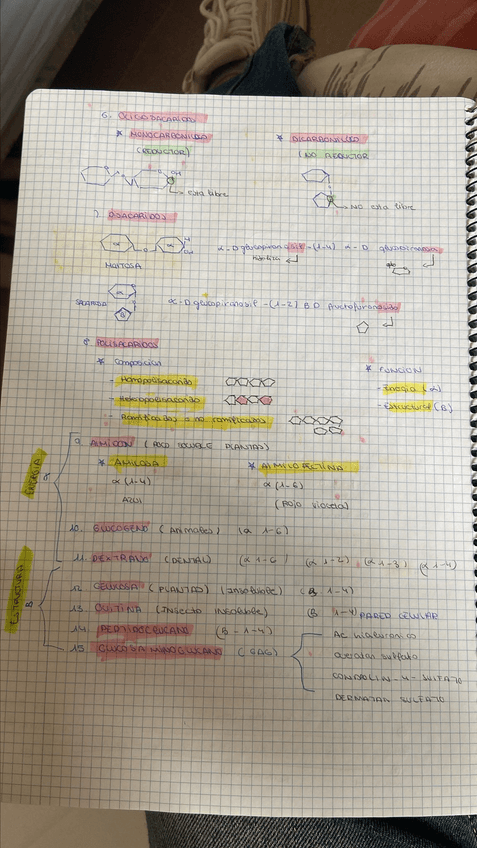 6. OLIGOSACARIDOS
* MONOCARBONILICO * DICARBONILICO
(REDUCTOR) (NO REDUCTOR
OH
→ esta libre
→ NO esta libre
) DISACARIDOS
α O α OH α-D glucopiranosil-(1-4) α-D glucopiranosa
MALTOSA
α
SACAROSA α-D glucopiranosil-(1-2) B D fructofuranosido
B
8 POLISACARIDOS
* Composicion * FUNCION
- Homopolisacarido - Energia (α)
- Heteropolisacarido - Estructura (B)
- Ramificados o no ramificados
9. ALMIDON (POCO SOLUBLE PLANTAS)
* AMILOSA * AMILOPECTINA
α (1-4) α (1-6)
AZUL (ROJO violeta)
ENERGIA α
10. GLUCOGENO (animales) (α 1-6)
11. DEXTRANO (DENTAL) (α 1-6) (α 1-2) (α 1-3) (α 1-4)
ESTRUCTURA B
12. CELULOSA (PLANTAS) (insoluble) (B 1-4)
13. QUITINA (Insecto INSOLUBLE) (B 1-4) PARED CELULAR
14. PEPTIDOGLUCANO (B-1-4)
15. GLUCOSAMINOGLUCANO (GAG)
Ac hialuronico
queratan sulfato
CONDROITIN-4-SULFATO
DERMATAN SULFATO